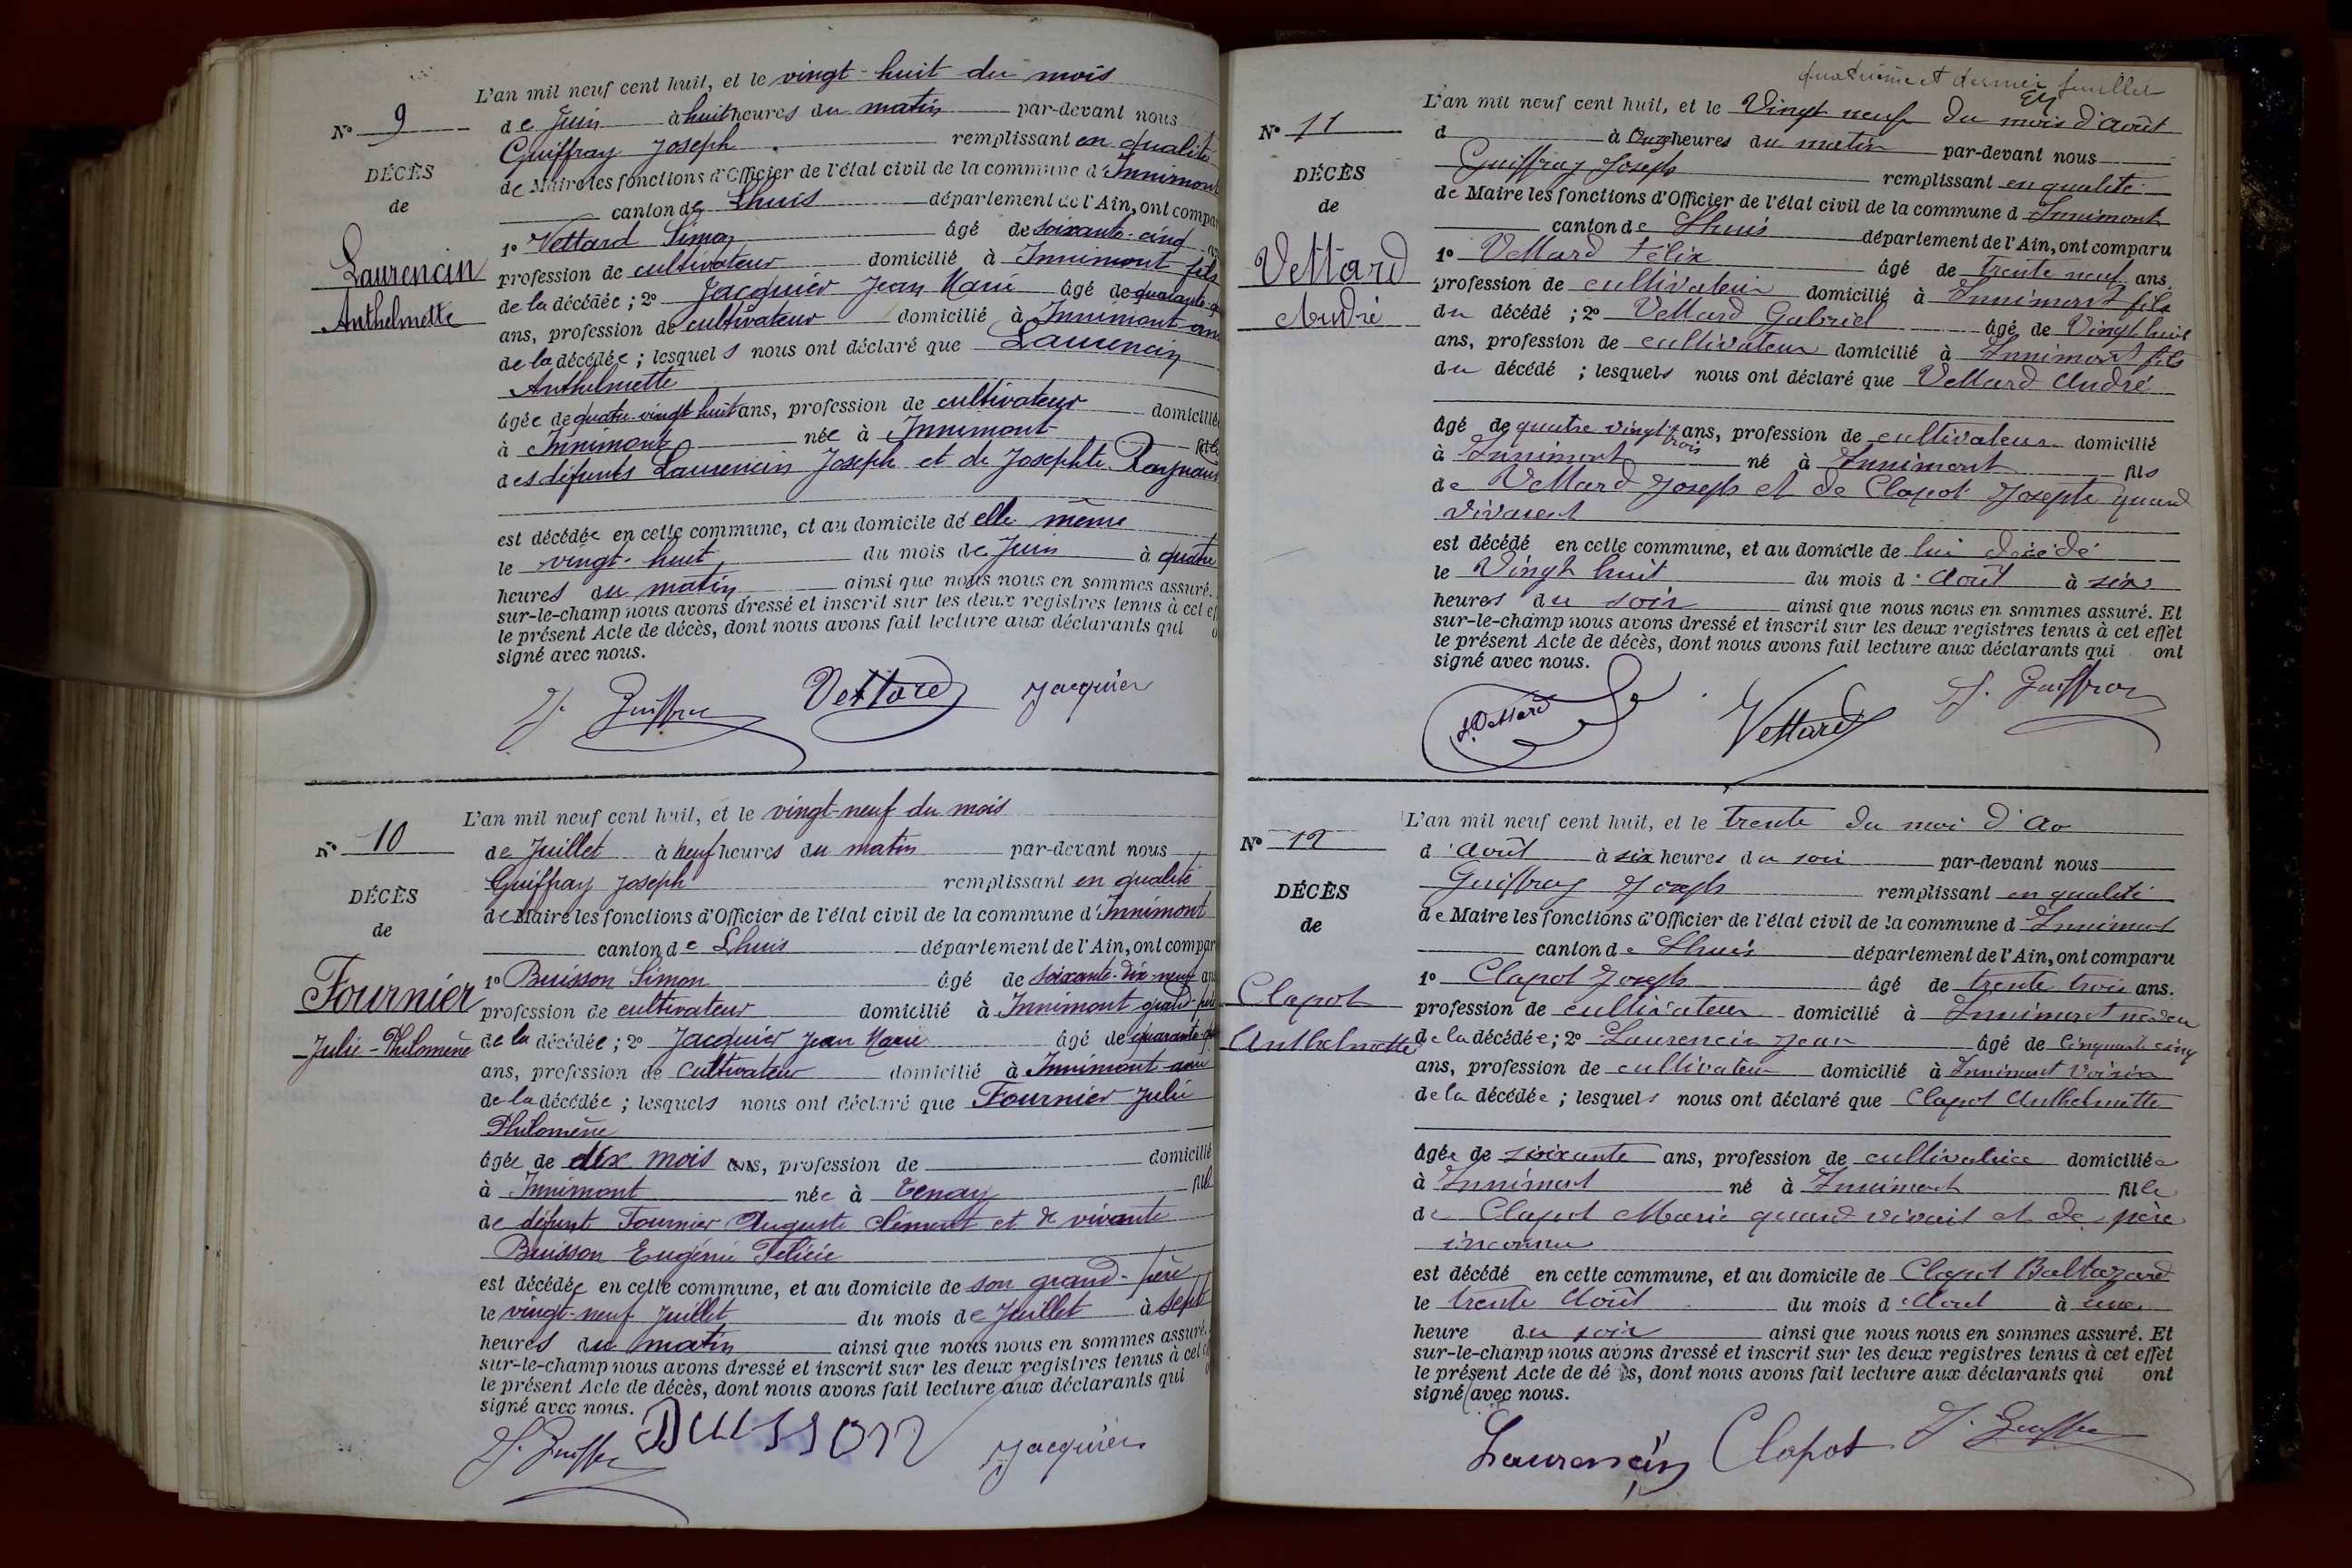 L'an mil neuf cent huit, et le vingt-huit du mois
N° 9
de Juin à huit heures du matin par-devant nous
Guiffray Joseph remplissant en qualité
DÉCÈS
de Maire les fonctions d'Officier de l'état civil de la commune d'Innimont
de
canton de Lhuis département de l'Ain, ont compar
1° Vettard Simon âgé de soixante-cinq
Laurencin
Anthelmette
profession de cultivateur domicilié à Innimont fils
de la décédée ; 2° Jacquier Jean Marie âgé de quarante
ans, profession de cultivateur domicilié à Innimont ami
de la décédée ; lesquels nous ont déclaré que Laurencin
Anthelmette
âgée de quatre-vingt huit ans, profession de cultivateur domicilié
à Innimont née à Innimont fille
des défunts Laurencin Joseph et de Josephte
est décédée en cette commune, et au domicile de elle même
le vingt-huit du mois de Juin à quatre
heures du matin ainsi que nous nous en sommes assuré.
sur-le-champ nous avons dressé et inscrit sur les deux registres tenus à cet ef
le présent Acte de décès, dont nous avons fait lecture aux déclarants qui
signé avec nous.
J. Guiffray Vettard Jacquier
L'an mil neuf cent huit, et le vingt-neuf du mois
N° 10
de Juillet à neuf heures du matin par-devant nous
Guiffray Joseph remplissant en qualité
DÉCÈS
de Maire les fonctions d'Officier de l'état civil de la commune d'Innimont
de
canton de Lhuis département de l'Ain, ont compar
1° Buisson Simon âgé de soixante-dix-neuf ans
Fournier
Julie-Philomène
profession de cultivateur domicilié à Innimont grand-père
de la décédée ; 2° Jacquier Jean Marie âgé de quarante
ans, profession de cultivateur domicilié à Innimont ami
de la décédée ; lesquels nous ont déclaré que Fournier Julie
Philomène
âgée de dix mois ans, profession de domicilié
à Innimont née à Tenay fille
de défunt Fournier Auguste Clément et de vivante
Buisson Eugénie Félicie
est décédée en cette commune, et au domicile de son grand-père
le vingt-neuf Juillet du mois de Juillet à sept
heures du matin ainsi que nous nous en sommes assuré.
sur-le-champ nous avons dressé et inscrit sur les deux registres tenus à cet
le présent Acte de décès, dont nous avons fait lecture aux déclarants qui
signé avec nous.
J. Guiffray BUISSON Jacquier
quatrième et dernier feuillet
L'an mil neuf cent huit, et le Vingt neuf du mois d'Août
N° 11
d à Onze heures du matin par-devant nous
Guiffray Joseph remplissant en qualité
DÉCÈS
de Maire les fonctions d'Officier de l'état civil de la commune d Innimont
de
canton de Lhuis département de l'Ain, ont comparu
1° Vettard Félix âgé de trente neuf ans
Vettard
André
profession de cultivateur domicilié à Innimont fils
du décédé ; 2° Vettard Gabriel âgé de Vingt huit
ans, profession de cultivateur domicilié à Innimont fils
du décédé ; lesquels nous ont déclaré que Vettard André
âgé de quatre vingt trois ans, profession de cultivateur domicilié
à Innimont né à Innimont fils
de Vettard Joseph et de Clapot Josepte quand
vivaient
est décédé en cette commune, et au domicile de lui décédé
le Vingt huit du mois d'Août à six
heures du soir ainsi que nous nous en sommes assuré. Et
sur-le-champ nous avons dressé et inscrit sur les deux registres tenus à cet effet
le présent Acte de décès, dont nous avons fait lecture aux déclarants qui ont
signé avec nous.
Vettard Vettard J. Guiffray
L'an mil neuf cent huit, et le trente du moi d'Ao
N° 12
d'Août à six heures du soir par-devant nous
Guiffray Joseph remplissant en qualité
DÉCÈS
de Maire les fonctions d'Officier de l'état civil de la commune d Innimont
de
canton de Lhuis département de l'Ain, ont comparu
1° Clapot Joseph âgé de trente trois ans.
Clapot
Anthelmette
profession de cultivateur domicilié à Innimont neveu
de la décédée ; 2° Laurencin Jean âgé de Cinquante cinq
ans, profession de cultivateur domicilié à Innimont Voisin
de la décédée ; lesquels nous ont déclaré que Clapot Anthelmette
âgée de soixante ans, profession de cultivatrice domiciliée
à Innimont né à Innimont fille
de Clapot Marie quand vivait et de père
inconnu
est décédé en cette commune, et au domicile de Clapot Baltazard
le trente Août du mois d'Aout à une
heure du soir ainsi que nous nous en sommes assuré. Et
sur-le-champ nous avons dressé et inscrit sur les deux registres tenus à cet effet
le présent Acte de dé ès, dont nous avons fait lecture aux déclarants qui ont
signé avec nous.
Laurencin Clapot J. Guiffray